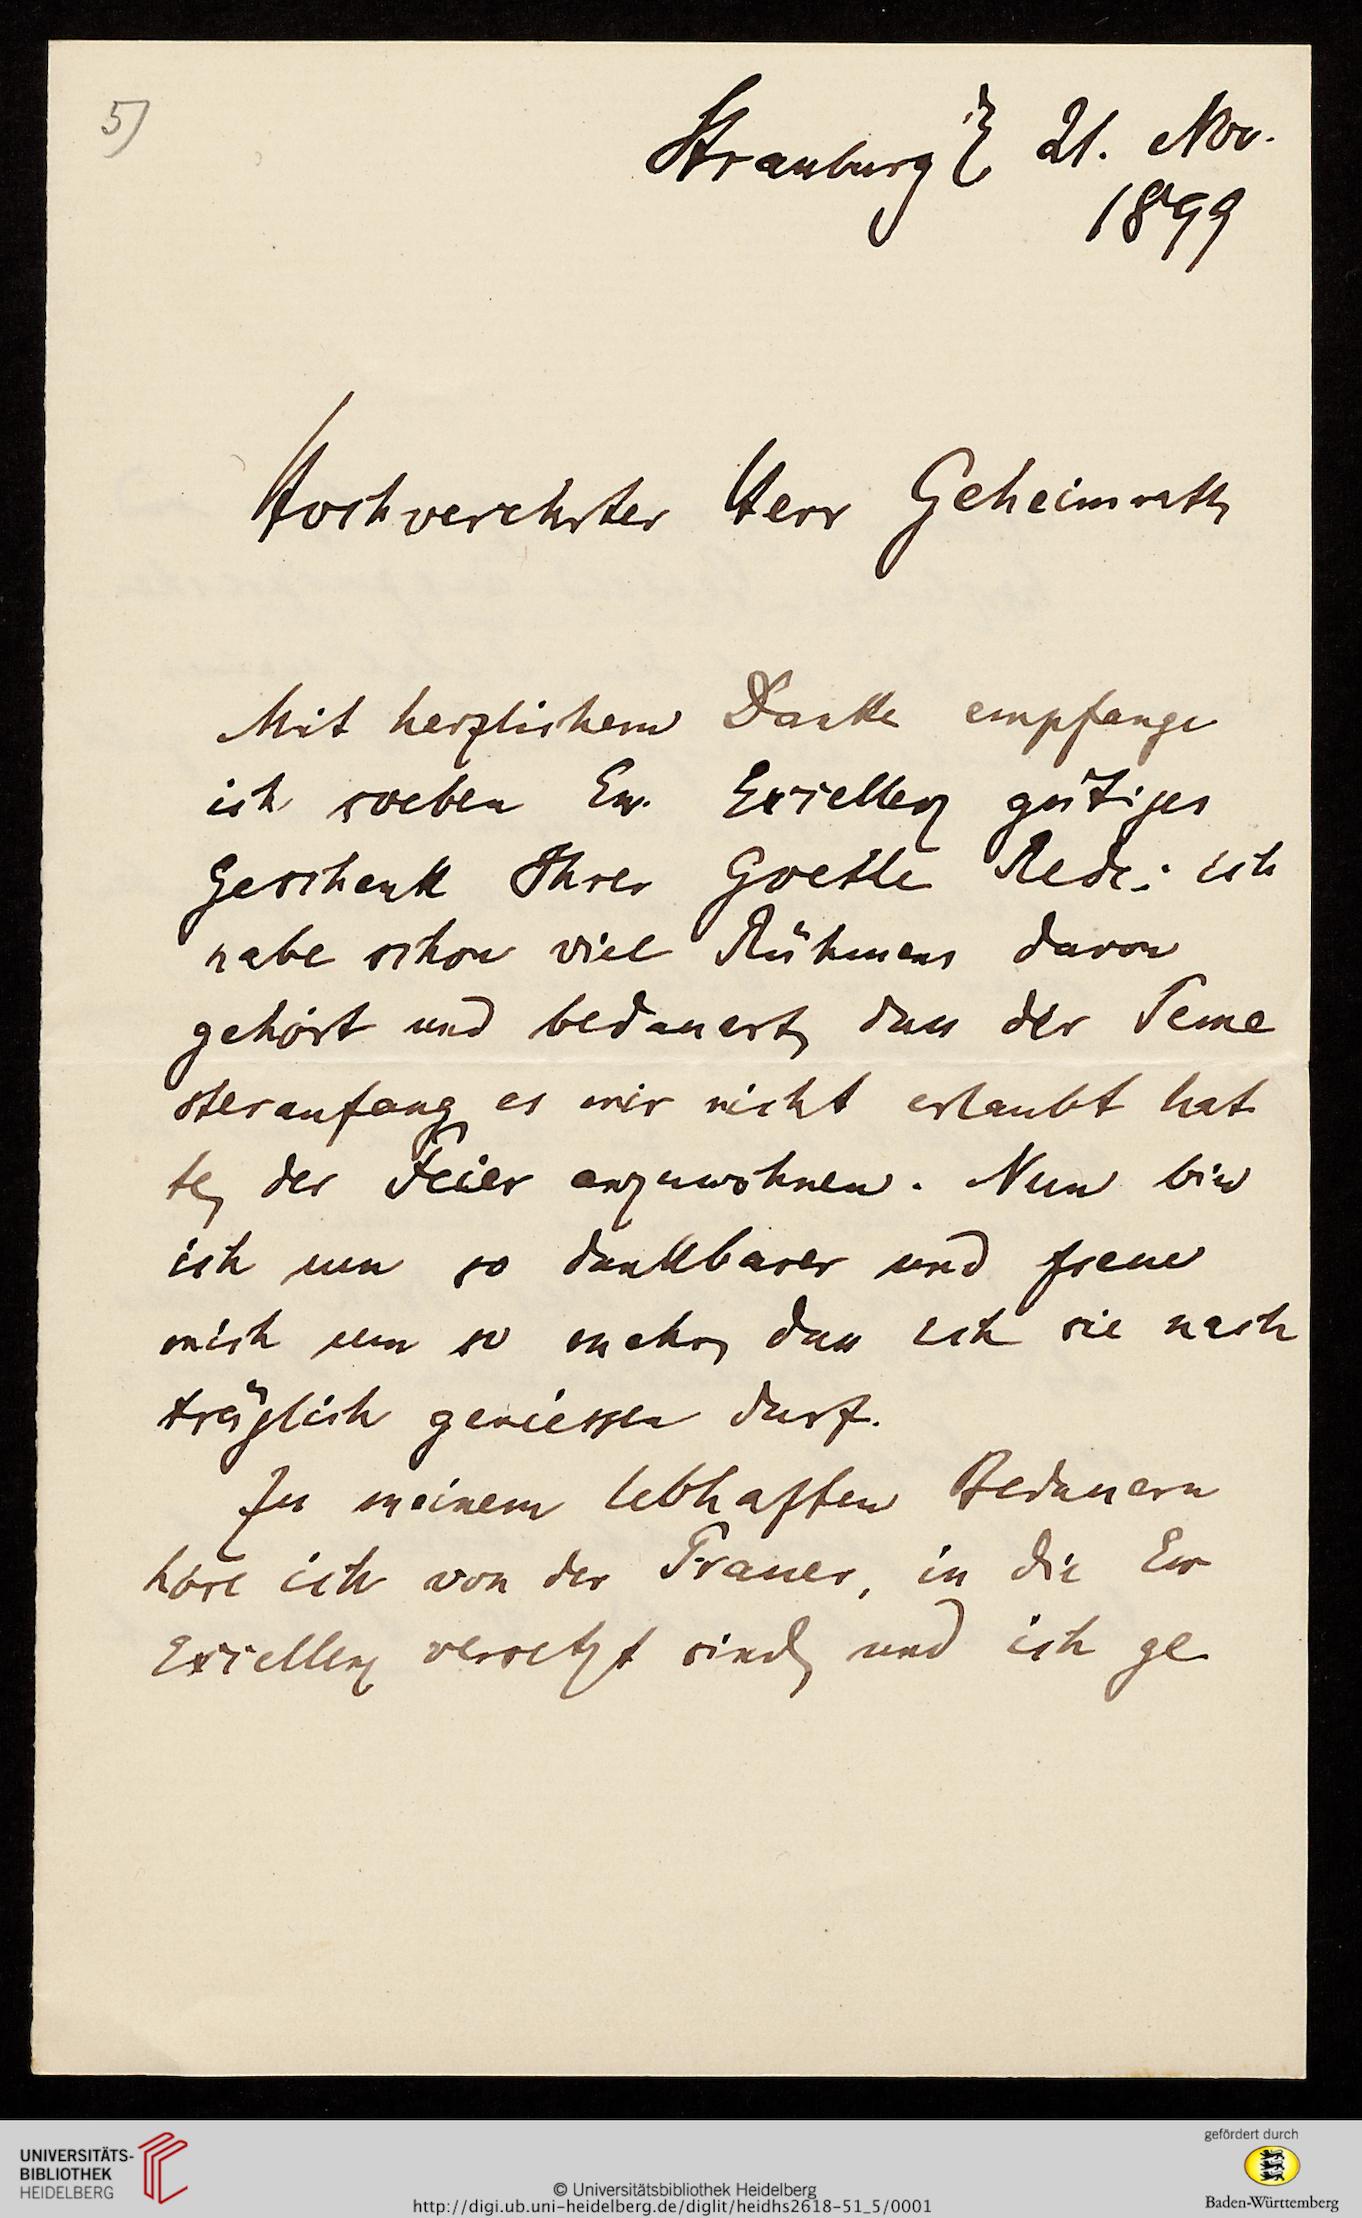 5)
Strassburg i/E 21. Nov.
1899
Hochverehrter Herr Geheimrath,
Mit herzlichem Danke empfange
ich soeben Ew. Excellenz gütiges
Geschenk Ihrer Goethe Rede; ich
habe schon viel Rühmens davon
gehört und bedauert, dass der Seme
steranfang es mir nicht erlaubt hat
te, der Feier anzuwohnen. Nun bin
ich um so dankbarer und freue
mich um so mehr, dass ich sie nach
träglich geniessen darf.
Zu meinem lebhaften Bedauern
höre ich von der Trauer, in die Ew
Excellenz versetzt sind, und ich ge
UNIVERSITÄTS-
BIBLIOTHEK
HEIDELBERG
© Universitätsbibliothek Heidelberg
http://digi.ub.uni-heidelberg.de/diglit/heidhs2618-51_5/0001
gefördert durch
Baden-Württemberg